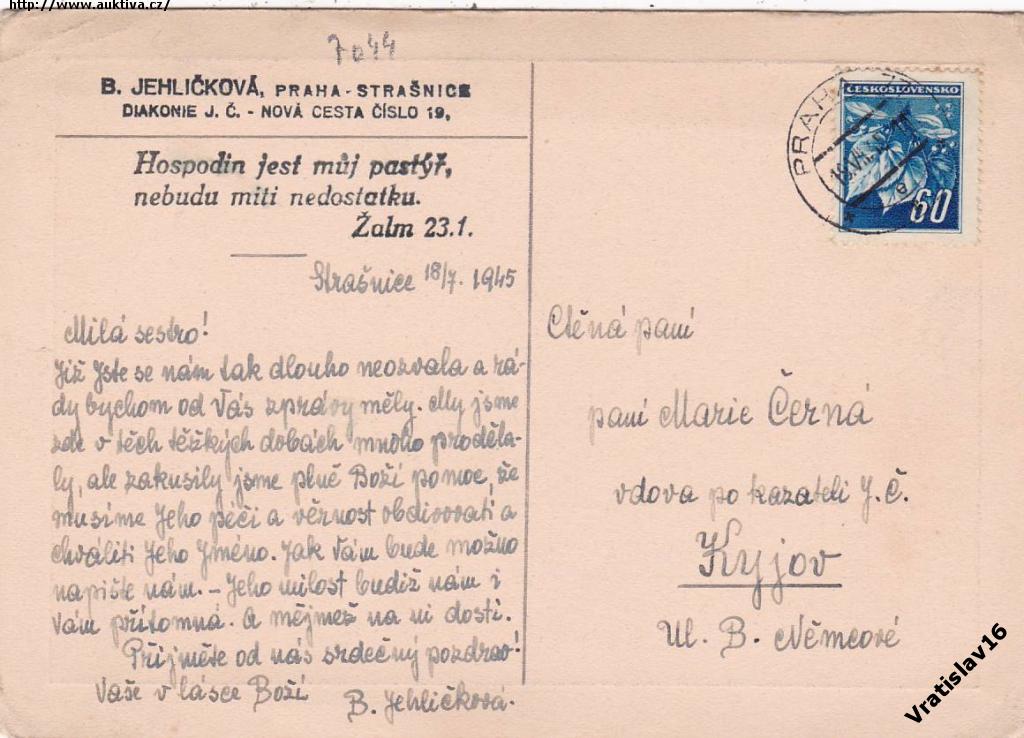 http://www.auktiva.cz/
7044
B. JEHLIČKOVÁ, PRAHA-STRAŠNICE
DIAKONIE J. Č. - NOVÁ CESTA ČÍSLO 19,
Hospodin jest můj pastýř,
nebudu míti nedostatku.
Žalm 23.1.
Strašnice 18/7. 1945
Milá sestro!
Již Jste se nám tak dlouho neozvala a rá-
dy bychom od Vás zprávy měly. My jsme
zde v těch těžkých dobách mnoho proděla-
ly, ale zakusily jsme plně Boží pomoc, že
musíme Jeho péči a věrnost obdivovati a
chváliti Jeho Jméno. Jak Vám bude možno
napište nám. – Jeho milost budiž nám i
Vám přítomná. A mějmež na ní dosti.
Přijměte od nás srdečný pozdrav!
Vaše v lásce Boží
B. Jehličková.
ČESKOSLOVENSKO
60
PRAHA
Ctěná paní
paní Marie Černá
vdova po kazateli J. Č.
Kyjov
Ul. B. Němcové
Vratislav16